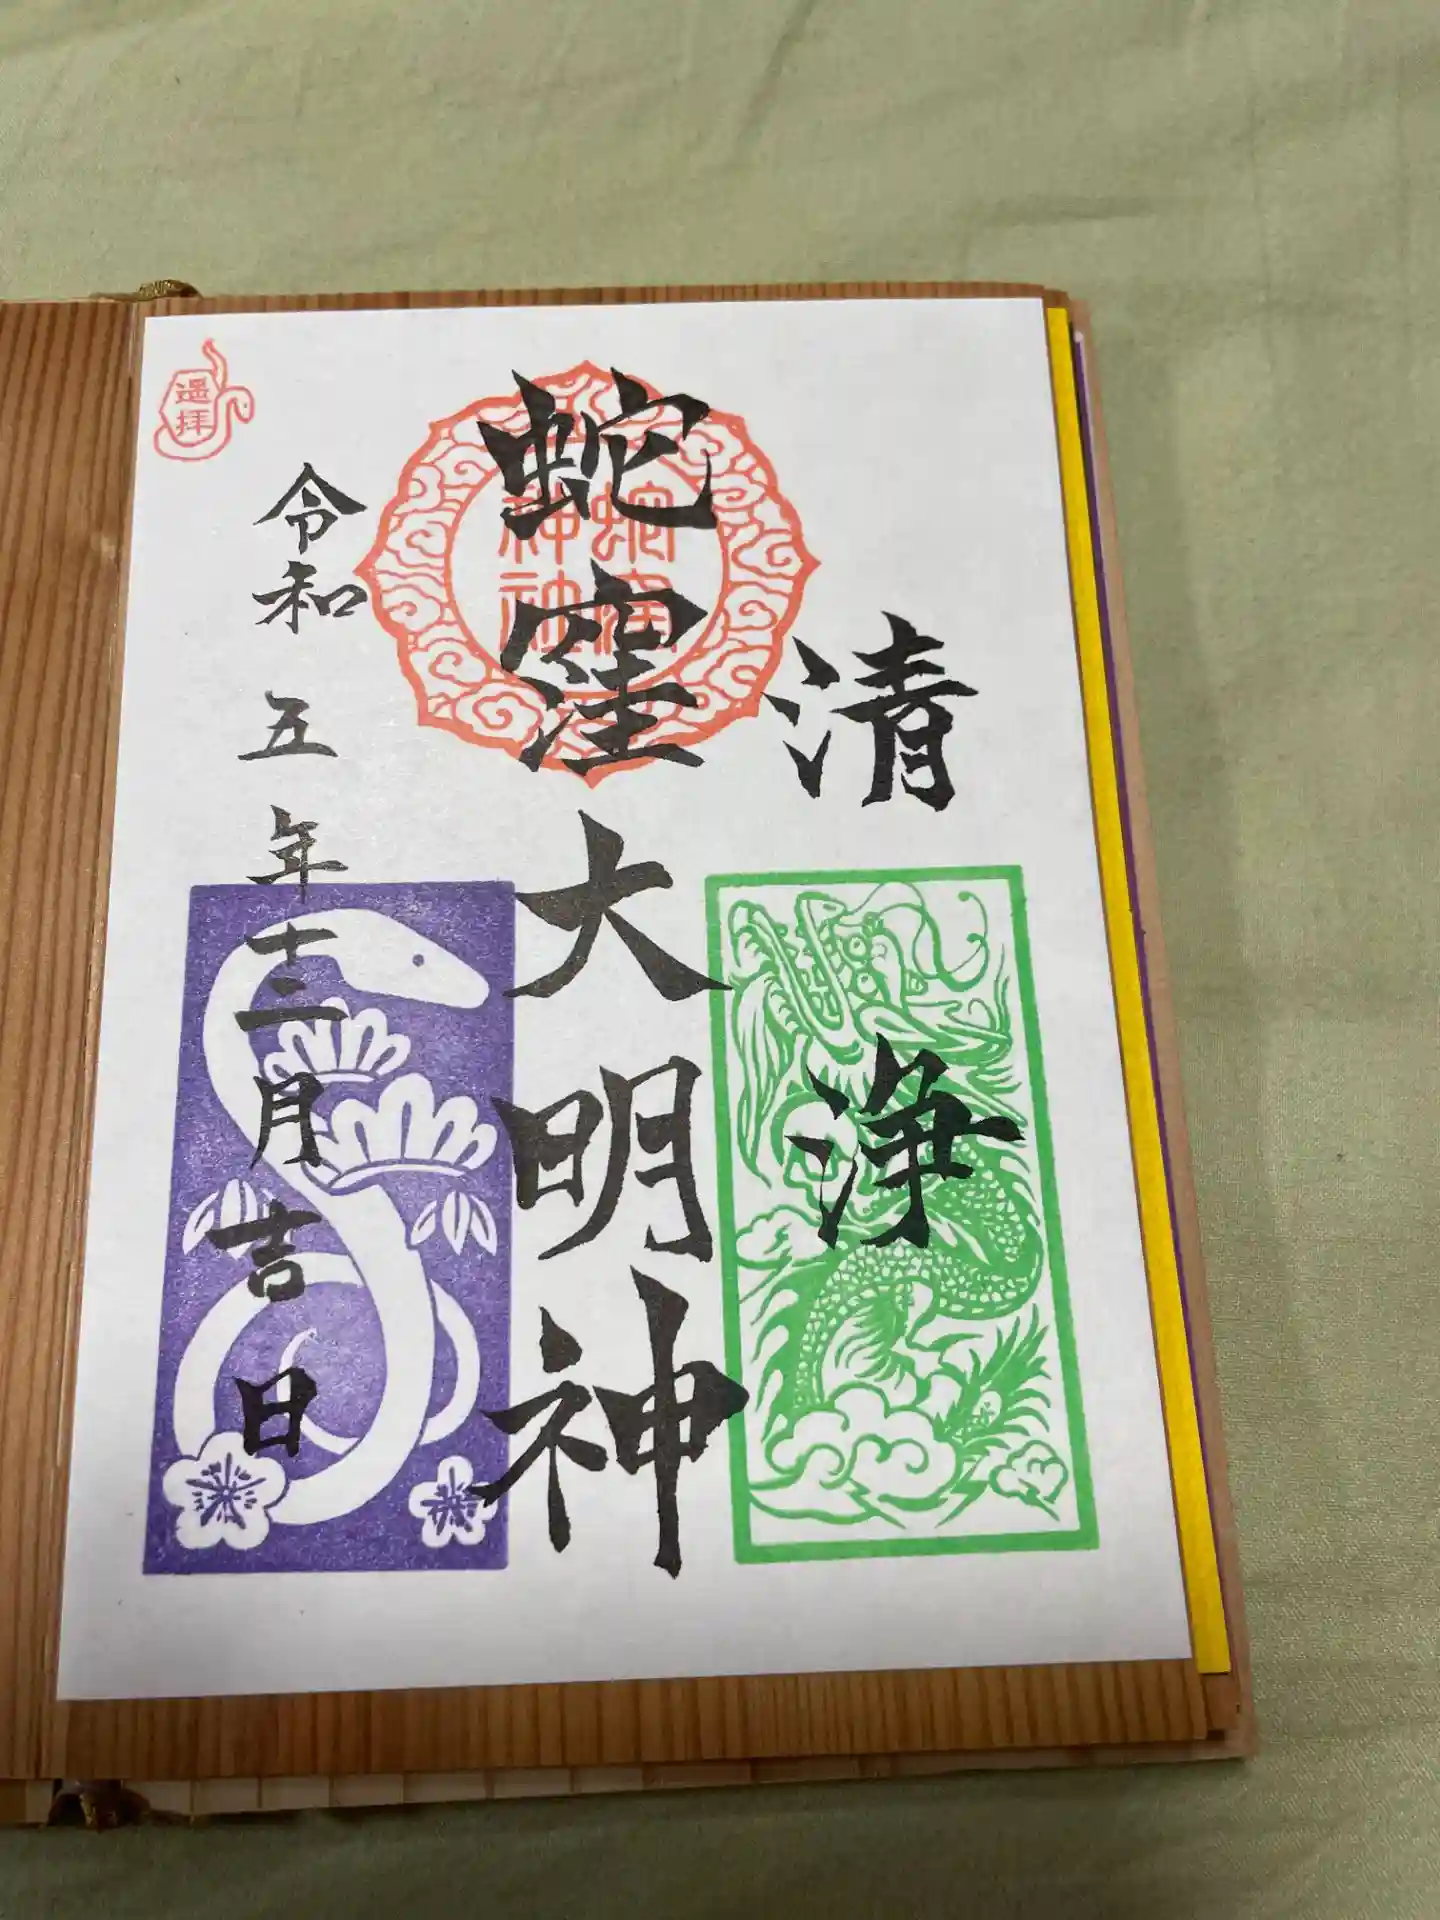 清浄
蛇窪大明神
蛇窪
神社
令和五年十二月吉日
遥拝